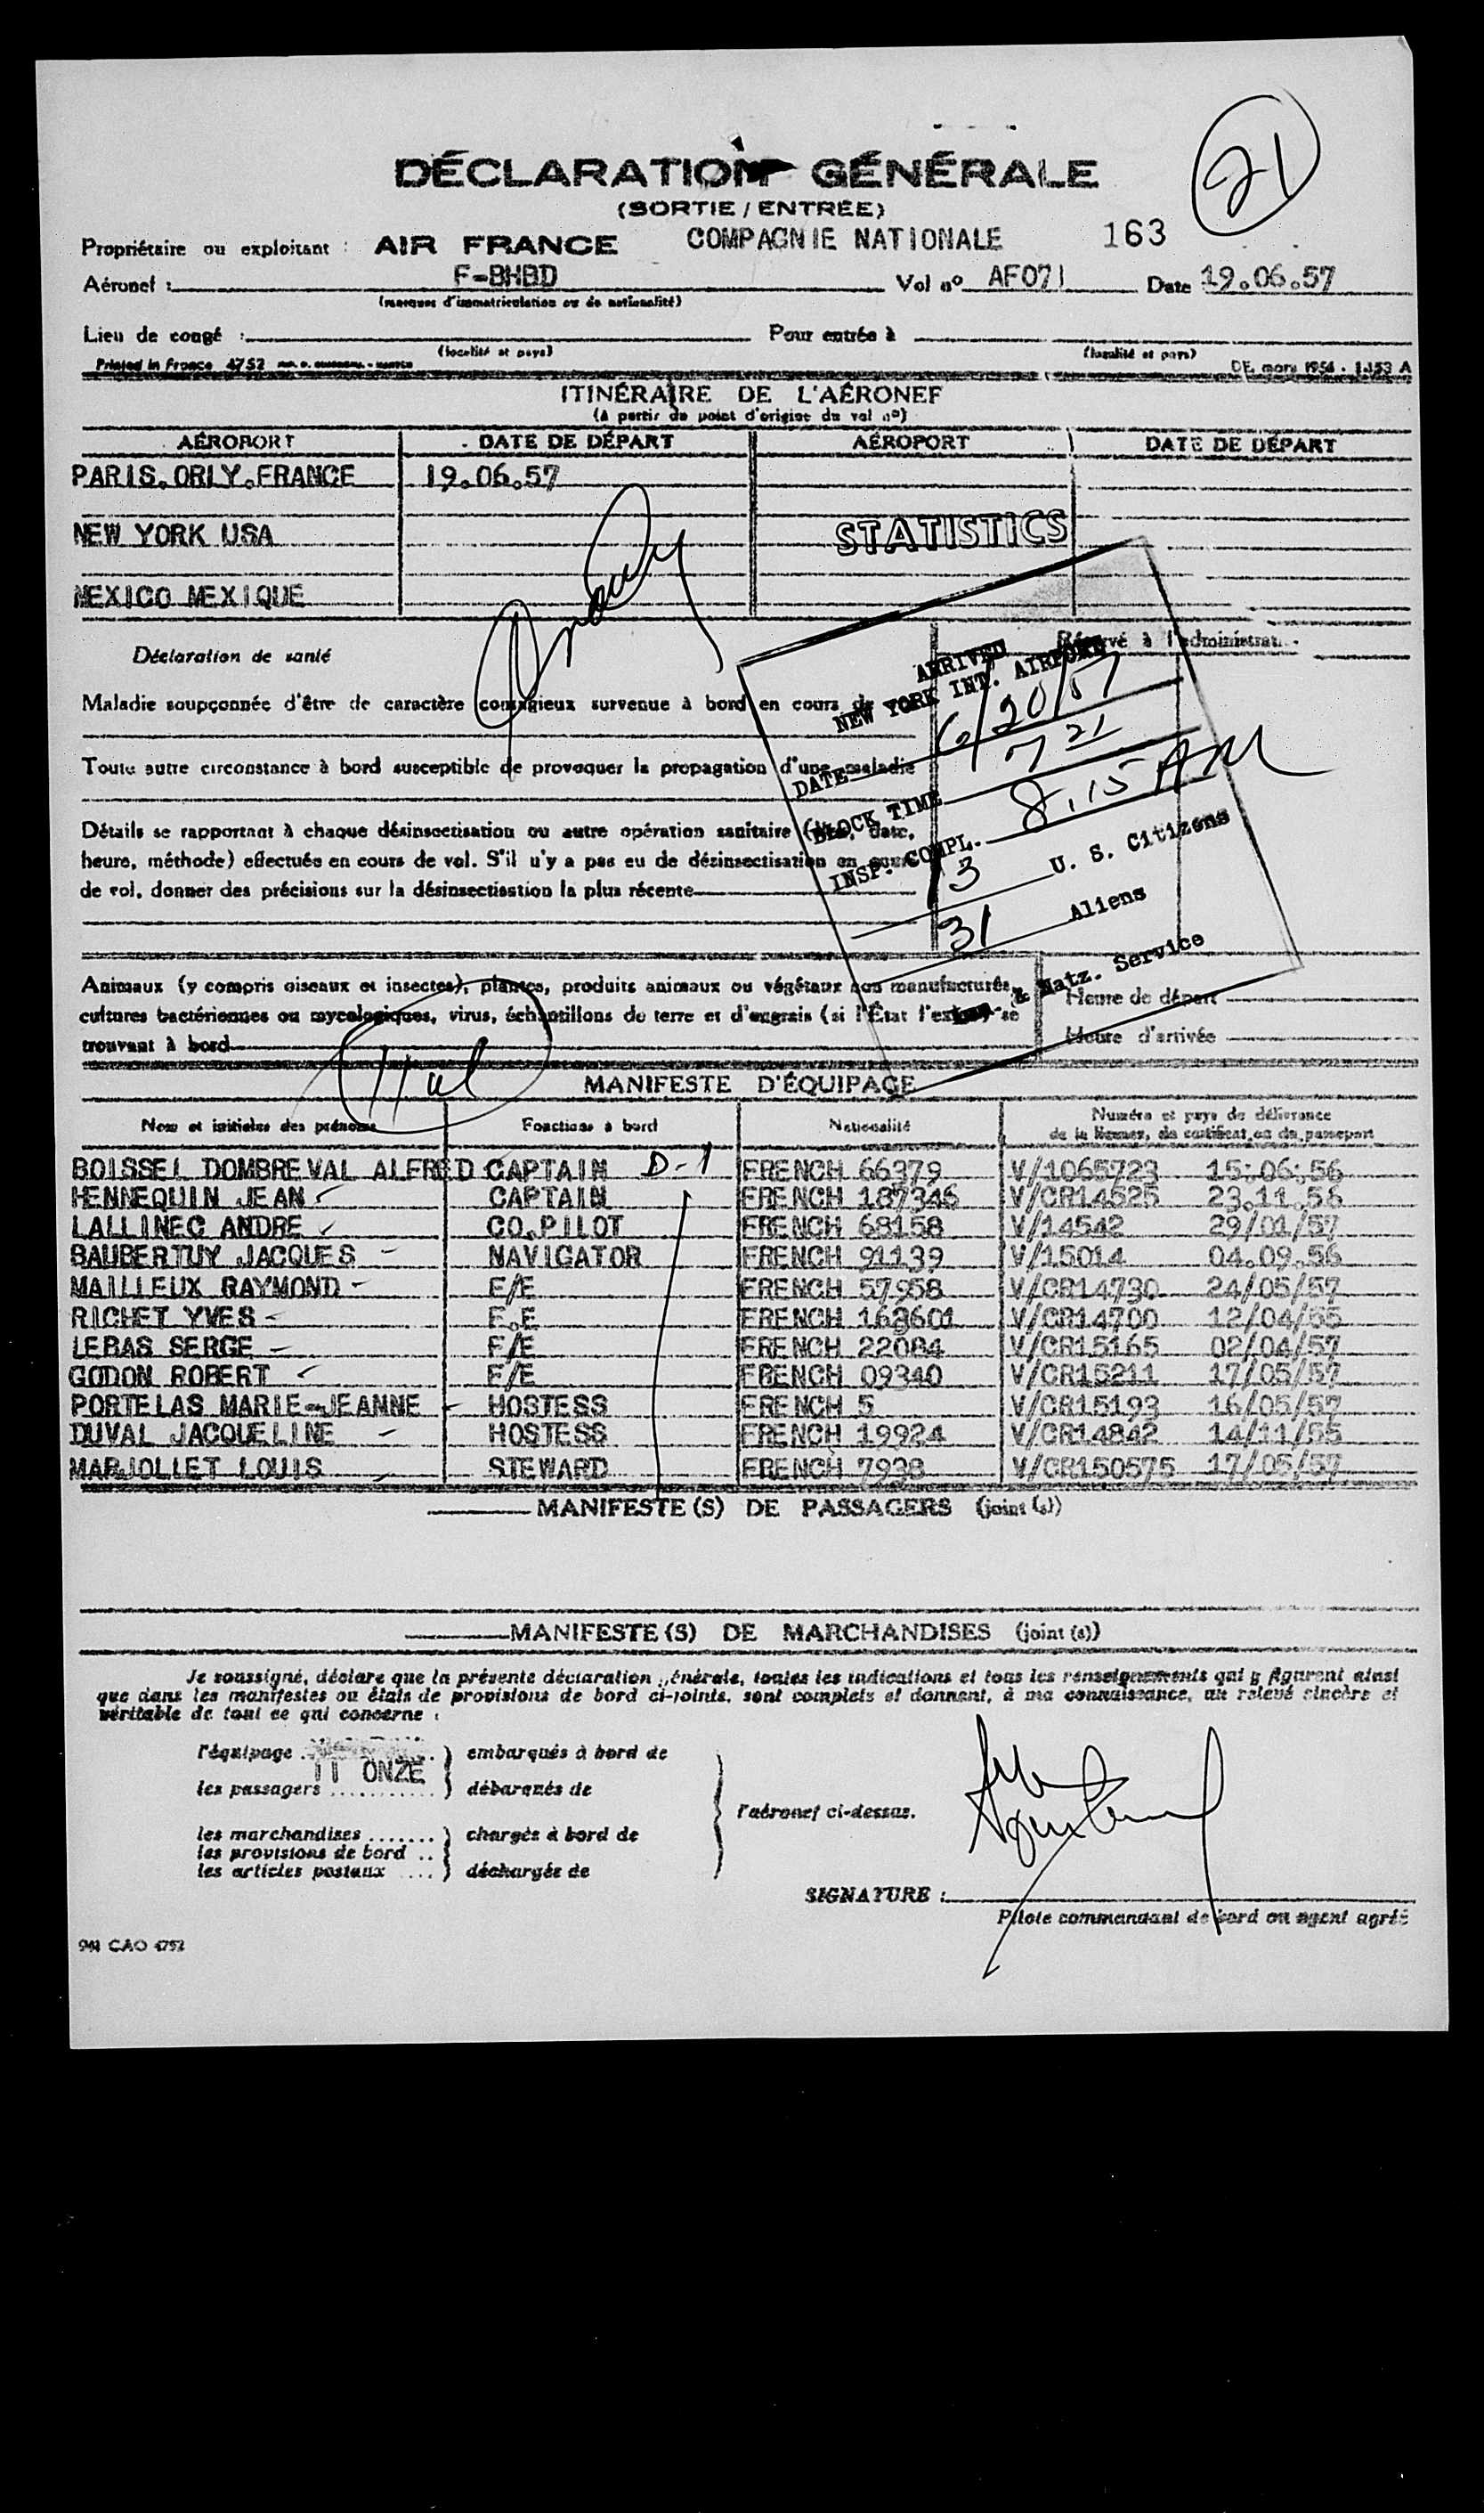 21
DÉCLARATION GÉNÉRALE
(SORTIE / ENTRÉE)
Propriétaire ou exploitant : AIR FRANCE COMPAGNIE NATIONALE 163
Aéronef : F-BHBD Vol nº AF071 Date 19.06.57
(marques d'immatriculation ou de nationalité)
Lieu de congé : Pour entrée à
(localité et pays) (localité et pays)
Printed in France 4752 DE mars 1954 - 1.153 A
ITINÉRAIRE DE L'AÉRONEF
(à partir du point d'origine du vol nº)
AÉROPORT DATE DE DÉPART AÉROPORT DATE DE DÉPART
PARIS.ORLY.FRANCE 19.06.57
NEW YORK USA STATISTICS
MEXICO MEXIQUE
Déclaration de santé Réservé à l'administrat.
Maladie soupçonnée d'être de caractère contagieux survenue à bord en cours de
Toute autre circonstance à bord susceptible de provoquer la propagation d'une maladie
Détails se rapportant à chaque désinsectisation ou autre opération sanitaire (lieu, date,
heure, méthode) effectuée en cours de vol. S'il n'y a pas eu de désinsectisation en cours
de vol, donner des précisions sur la désinsectisation la plus récente
ARRIVED
NEW YORK INT. AIRPORT
DATE 6/20/57
BLOCK TIME 7 21
INSP. COMPL. 8.15 AM
13 U. S. Citizens
31 Aliens
Imm. & Natz. Service
Animaux (y compris oiseaux et insectes), plantes, produits animaux ou végétaux non manufacturés,
cultures bactériennes ou mycologiques, virus, échantillons de terre et d'engrais (si l'État l'exige) se
trouvant à bord
Heure de départ
Heure d'arrivée
MANIFESTE D'ÉQUIPAGE
Nom et initiales des prénoms Fonctions à bord Nationalité Numéro et pays de délivrance
de la licence, du certificat ou du passeport
BOISSEL DOMBREVAL ALFRED CAPTAIN D-1 FRENCH 66379 V/1065723 15.06.56
HENNEQUIN JEAN CAPTAIN FRENCH 187346 V/CR14525 23.11.56
LALLINEC ANDRE CO.PILOT FRENCH 68158 V/14542 29/01/57
BAUBERTUY JACQUES NAVIGATOR FRENCH 91139 V/15014 04.09.56
MAILLEUX RAYMOND F/E FRENCH 57958 V/CR14730 24/05/57
RICHET YVES F.E FRENCH 163601 V/CR14700 12/04/55
LEBAS SERGE F/E FRENCH 22084 V/CR15165 02/04/57
GODON ROBERT F/E FRENCH 09340 V/CR15211 17/05/57
PORTELAS MARIE-JEANNE HOSTESS FRENCH 5 V/CR15193 16/05/57
DUVAL JACQUELINE HOSTESS FRENCH 19924 V/CR14842 14/11/55
MARJOLLET LOUIS STEWARD FRENCH 7938 V/CR150575 17/05/57
MANIFESTE (S) DE PASSAGERS (joint (s))
MANIFESTE (S) DE MARCHANDISES (joint (s))
Je soussigné, déclare que la présente déclaration générale, toutes les indications et tous les renseignements qui y figurent ainsi
que dans les manifestes ou états de provisions de bord ci-joints, sont complets et donnent, à ma connaissance, un relevé sincère et
véritable de tout ce qui concerne :
l'équipage 11 ONZE embarqués à bord de
les passagers ........... débarqués de
l'aéronef ci-dessus.
les marchandises ....... chargés à bord de
les provisions de bord ..
les articles postaux .... déchargés de
SIGNATURE :
Pilote commandant de bord ou agent agréé
941 CAO 4752